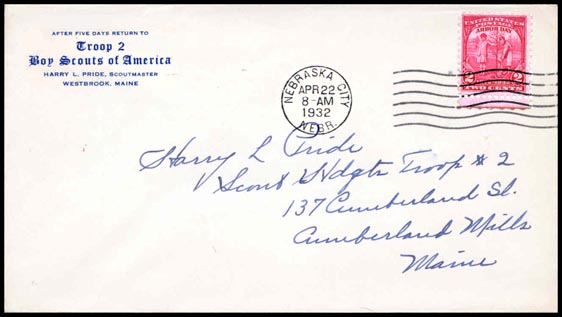 AFTER FIVE DAYS RETURN TO
Troop 2
Boy Scouts of America
HARRY L. PRIDE, SCOUTMASTER
WESTBROOK, MAINE
UNITED STATES
POSTAGE
ARBOR DAY
2 2
TWO CENTS
NEBRASKA CITY
APR 22
8-AM
1932
NEBR.
Harry L Pride
Scout Hdqts Troop # 2
137 Cumberland St.
Cumberland Mills
Maine